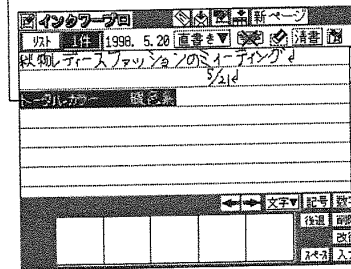 インクワープロ 新ページ
リスト 1件 1998. 5.20 直書き▼ 清書
秋物レディースファッションのミーティング↲
5/21↲
トータルカラー
文字▼ 記号 数字
後退 削除
改行
スペース 入